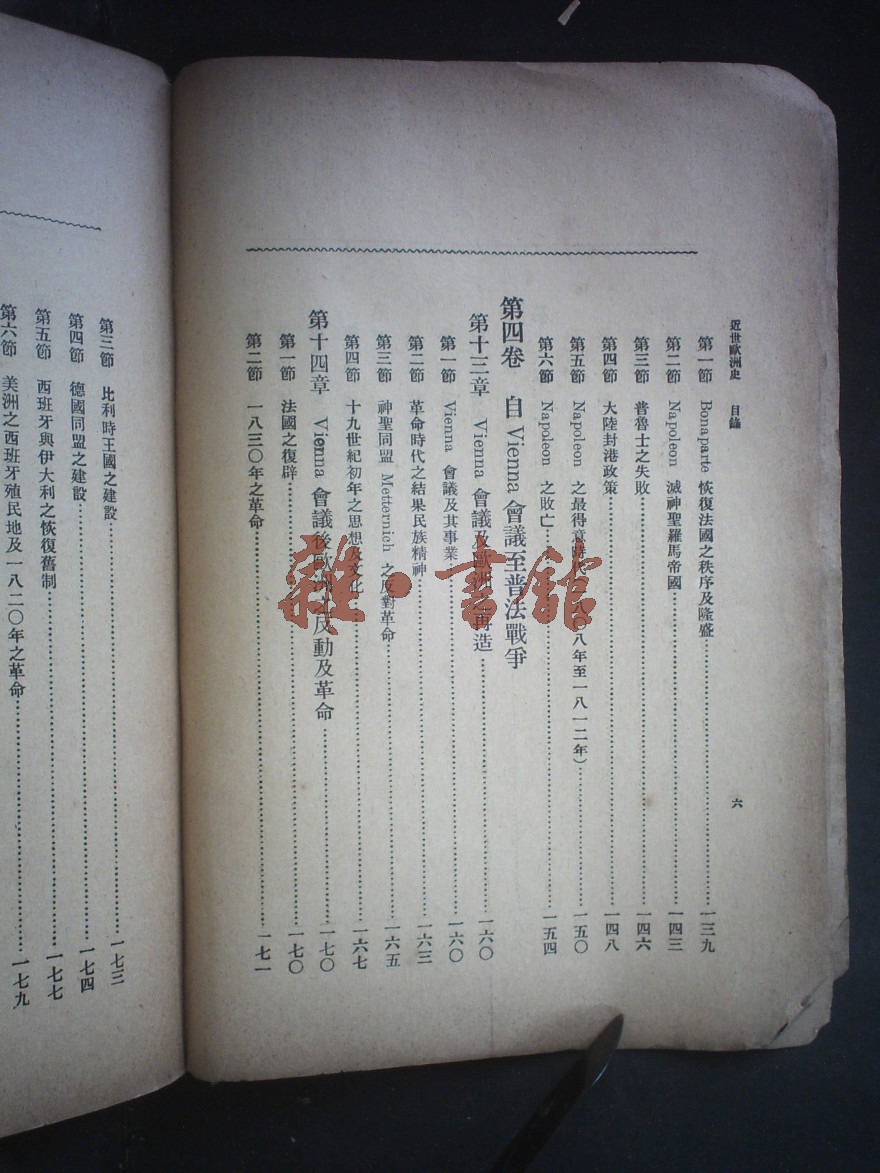 近世歐洲史 目錄 六
第一節 Bonaparte 恢復法國之秩序及隆盛……一三九
第二節 Napoleon 滅神聖羅馬帝國……一四三
第三節 普魯士之失敗……一四六
第四節 大陸封港政策……一四八
第五節 Napoleon 之最得意時代(一八〇八年至一八一二年)……一五〇
第六節 Napoleon 之敗亡……一五四
第四卷 自 Vienna 會議至普法戰爭
第十三章 Vienna 會議及歐洲之再造……一六〇
第一節 Vienna 會議及其事業……一六〇
第二節 革命時代之結果民族精神……一六三
第三節 神聖同盟 Metternich 之反對革命……一六五
第四節 十九世紀初年之思想及文化……一六七
第十四章 Vienna 會議後歐洲之反動及革命……一七〇
第一節 法國之復辟……一七〇
第二節 一八三〇年之革命……一七一
第三節 比利時王國之建設……一七三
第四節 德國同盟之建設……一七四
第五節 西班牙與伊大利之恢復舊制……一七七
第六節 美洲之西班牙殖民地及一八二〇年之革命……一七九
雜·書館